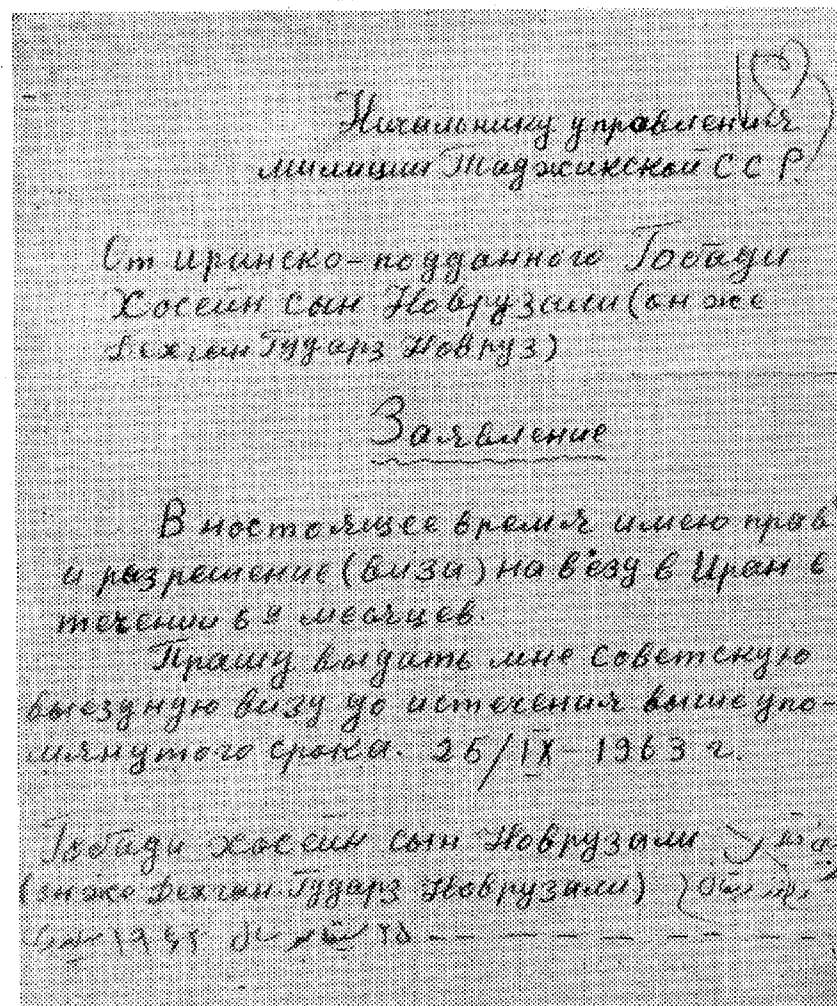 Начальнику управления
милиции Таджикской ССР.
От иринско-подданного Гобади
Хосейн сын Новрузали (он же
Дехган Гударз Новруз)
Заявление
В ностоящее время имею прав
и разрешение (визи) на в'езд в Иран в
течении 6и месяцев.
Прашу выдать мне советскую
выездную визу до истечения выше упо-
мянутого срока. 25/IX-1963 г.
Гобади хосейн сын Новрузали
(он же Дехган Гударз Новрузали)